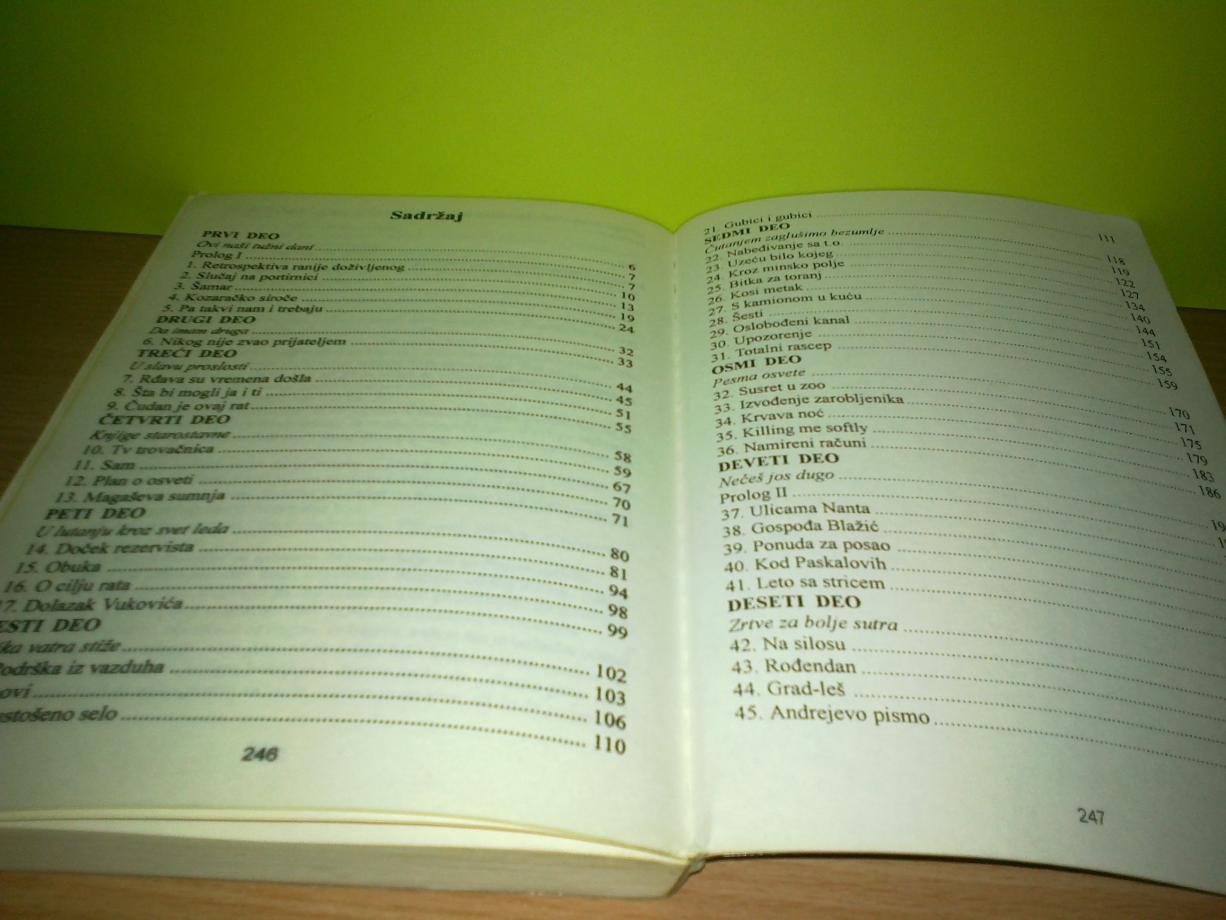 Sadržaj
PRVI DEO
Ovi naši tužni dani 6
Prolog I 7
1. Retrospektiva ranije doživljenog 7
2. Slučaj na portirnici 10
3. Šamar 13
4. Kozaračko siroče 19
5. Pa takvi nam i trebaju 24
DRUGI DEO
Da imam druga 32
6. Nikog nije zvao prijateljem 33
TREĆI DEO
U slavu proslosti 44
7. Rđava su vremena došla 45
8. Šta bi mogli ja i ti 51
9. Čudan je ovaj rat 55
ČETVRTI DEO
Knjige starostavne 58
10. Tv trovačnica 59
11. Sam 67
12. Plan o osveti 70
13. Magaševa sumnja 71
PETI DEO
U lutanju kroz svet leda 80
14. Doček rezervista 81
15. Obuka 94
16. O cilju rata 98
17. Dolazak Vukovića 99
ESTI DEO
vatra stiže 102
Podrška iz vazduha 103
ovi 106
stošeno selo 110
246
21. Gubici i gubici 111
SEDMI DEO
Ćutanjem zaglušimo bezumlje 118
22. Nabeđivanje sa t.o. 119
23. Uzeću bilo kojeg 122
24. Kroz minsko polje 127
25. Bitka za toranj 134
26. Kosi metak 140
27. S kamionom u kuću 144
28. Šesti 151
29. Oslobođeni kanal 154
30. Upozorenje 155
31. Totalni rascep 159
OSMI DEO
Pesma osvete 170
32. Susret u zoo 171
33. Izvođenje zarobljenika 175
34. Krvava noć 179
35. Killing me softly 183
36. Namireni računi 186
DEVETI DEO
Nećeš jos dugo
Prolog II
37. Ulicama Nanta
38. Gospođa Blažić
39. Ponuda za posao
40. Kod Paskalovih
41. Leto sa stricem
DESETI DEO
Zrtve za bolje sutra
42. Na silosu
43. Rođendan
44. Grad-leš
45. Andrejevo pismo
247